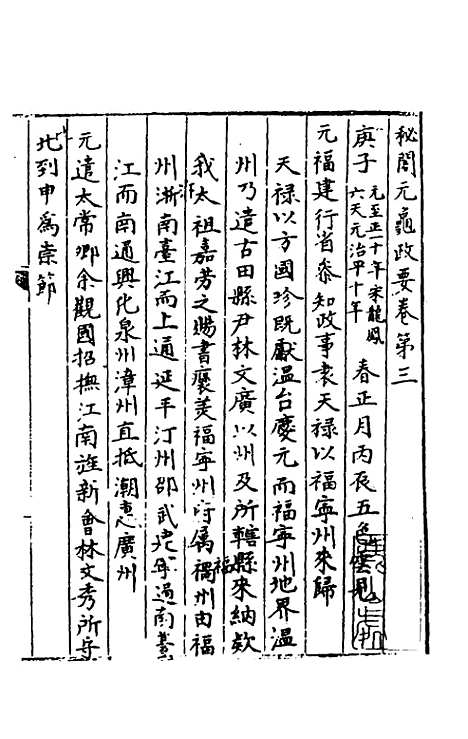 秘閣元龜政要卷第三
庚子 元至正二十年宋龍鳳
六天元治平十年 春正月丙辰五色雲見
元福建行省叅知政事袁天禄以福寧州來歸
天禄以方國珍既獻温台慶元而福寧州地界温
州乃遣古田縣尹林文廣以州及所轄縣來納欵
我太祖嘉芳之賜書褒美福寧州府属福州由福
州淅南臺江而上通延平汀州邵武 過南臺
江而南通興化泉州漳州直抵潮惠廣州
元遣太常卿余觀國招撫江南旌新會林文秀所守
北到申為崇節